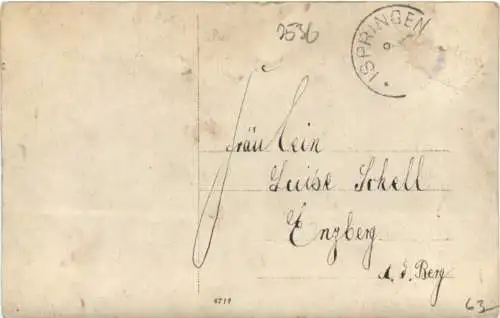 2536
ISPRINGEN
Fräulein
Luise Schell
Enzberg
a. d. Berg
6719
63